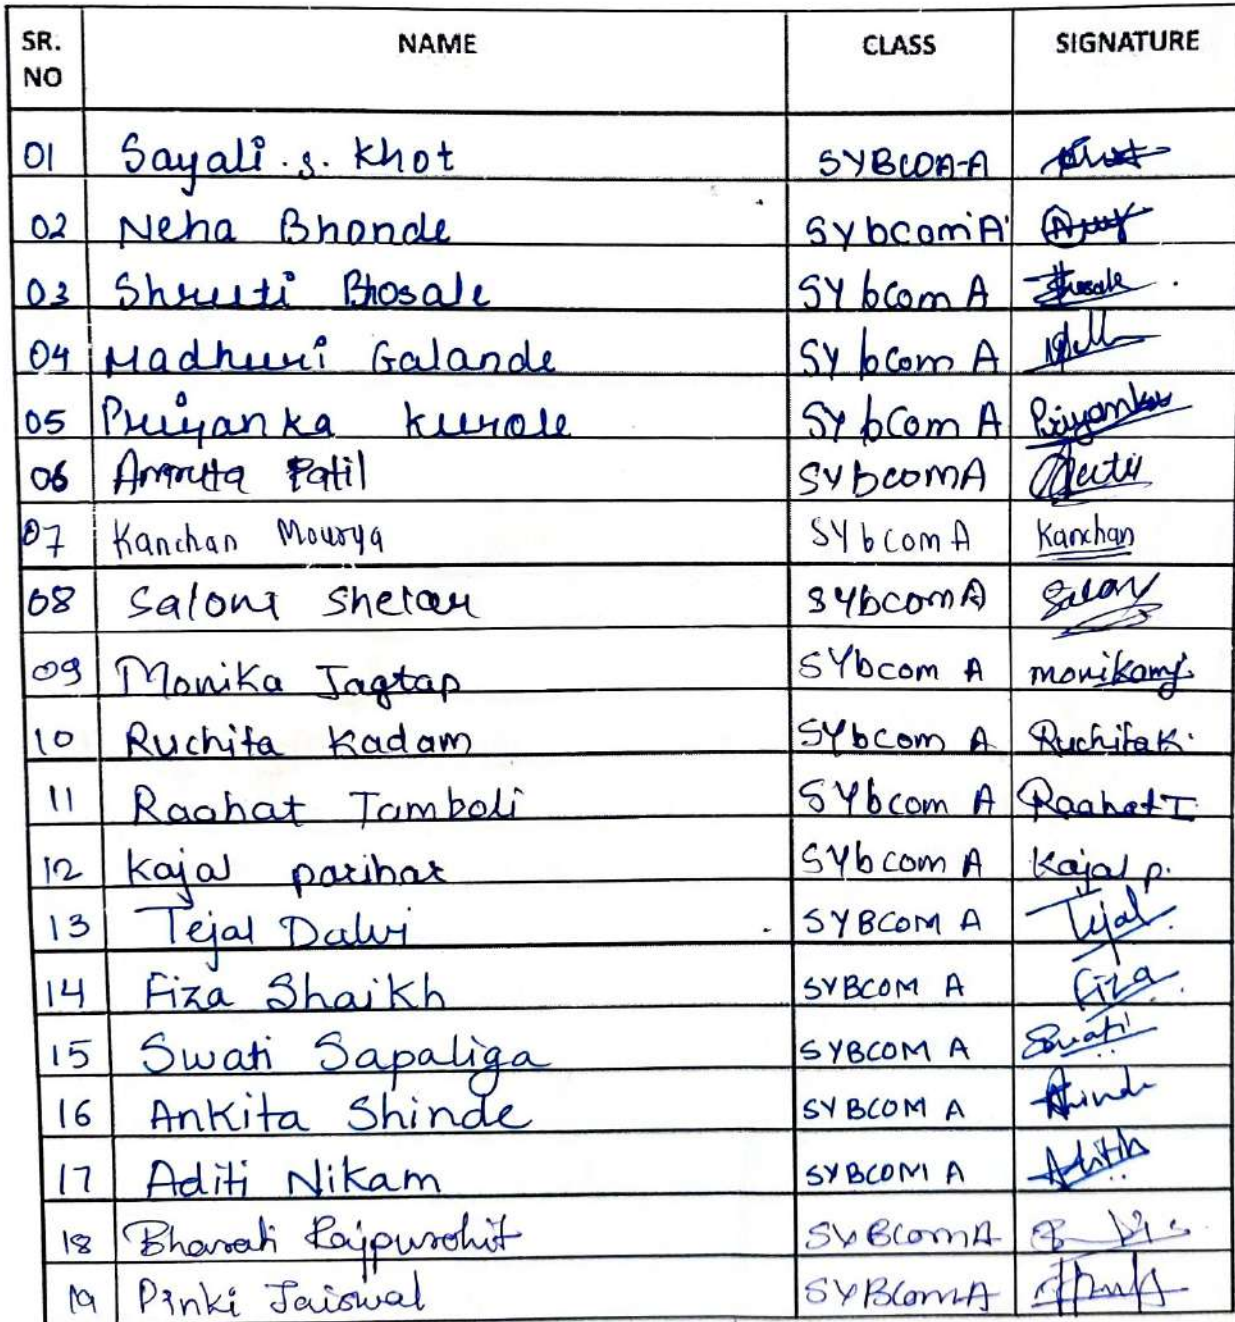 SR. NO NAME CLASS SIGNATURE
01 Sayali .s. Khot SYBCOA-A
02 Neha Bhonde SYbcom'A'
03 Shruti Bhosale SYbcom A Bhosale
04 Madhuri Galande SY bcom A
05 Priyanka kurole SY bCom A Priyanka
06 Amruta Patil SYbcomA
07 Kanchan Mourya SYbcomA Kanchan
08 Saloni Shelar SYbcomA
09 Monika Jagtap SYbcom A monikamj.
10 Ruchita Kadam SYbcom A Ruchitak.
11 Raahat Tamboli SYbcom A Raahat T
12 Kajal parihar SYbcom A Kajal p.
13 Tejal Dalvi SYBCOM A Tejal
14 Fiza Shaikh SYBCOM A Fiza
15 Swati Sapaliga SYBCOM A Swati
16 Ankita Shinde SYBCOM A
17 Aditi Nikam SYBCOM A
18 Bharati Rajpurohit SYBComA
19 Pinki Jaiswal SYBComA